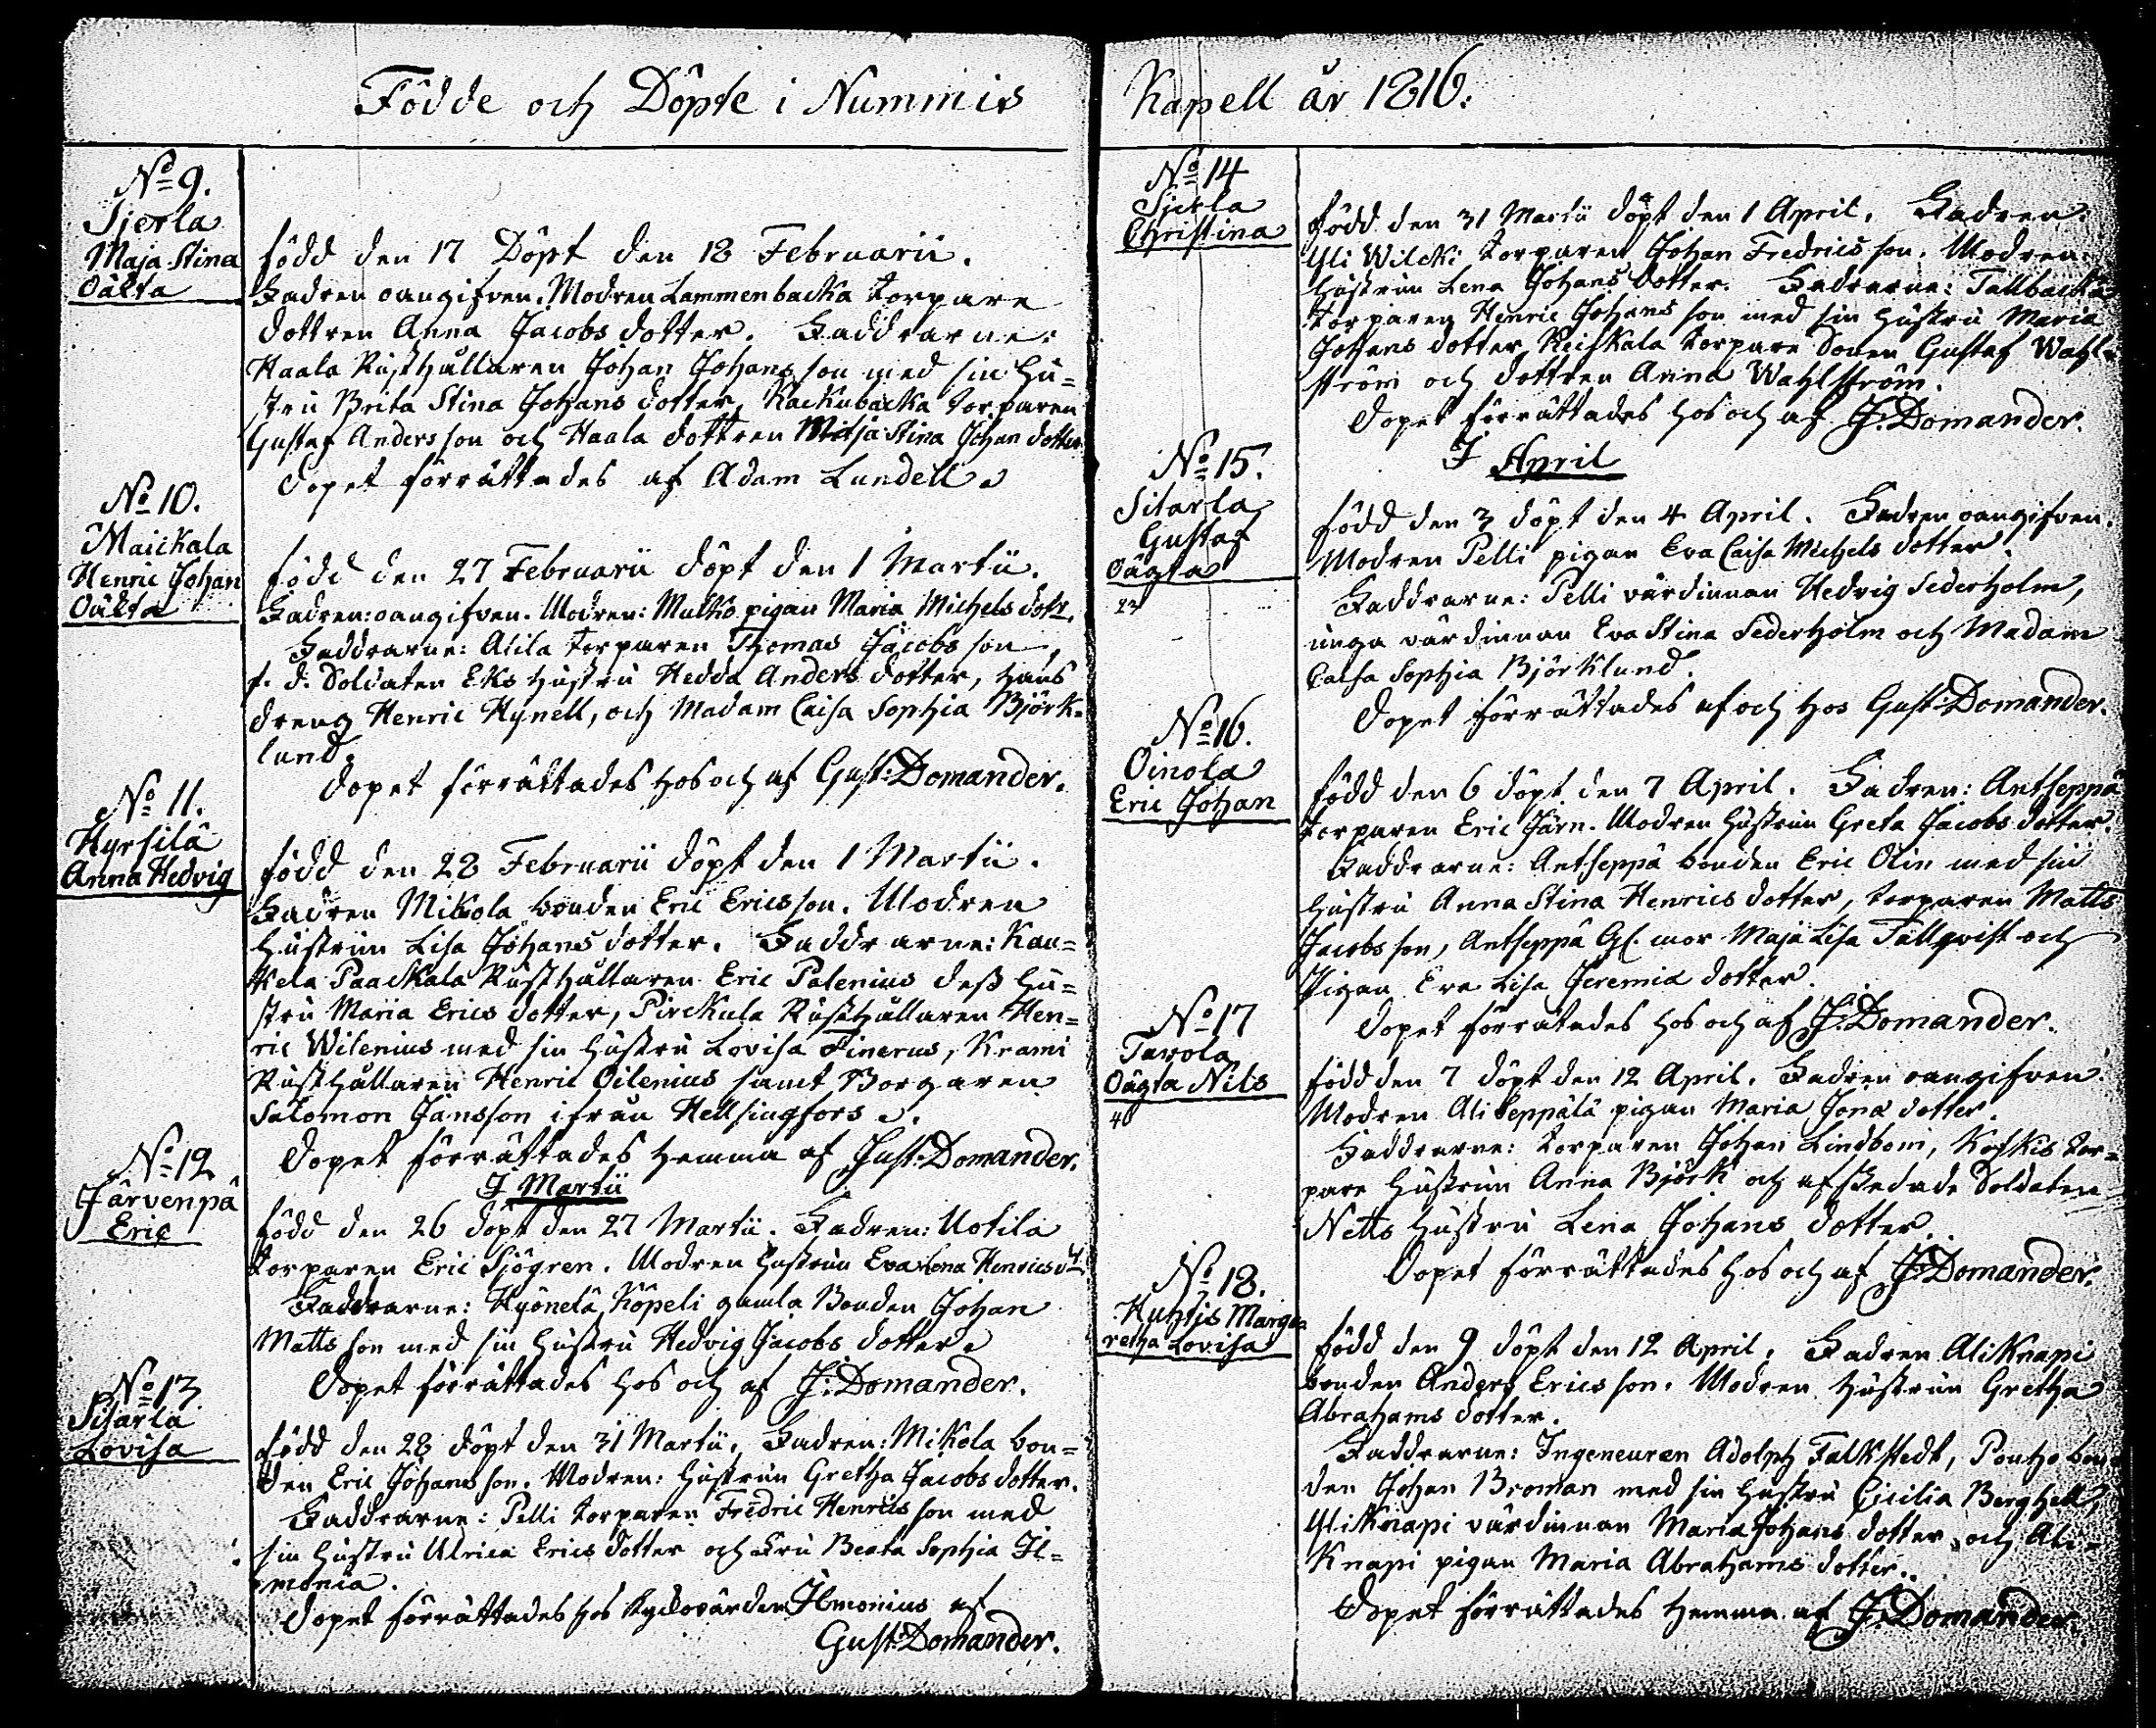 Födde och Döpte i Nummis
Kapell år 1816.
No 9.
Sierla
Maja Stina
Oäkta
född den 17 Döpt den 18 Februarii.
Fadren oangifven. Modren Lammenbacka torpare
dottren Anna Jacobs dotter. Faddrarne:
Haala Rusthållaren Johan Johans son med sin hu=
stru Brita Stina Johans dotter, Kackubacka torparen
Gustaf Anders son och Haala dottren Maja Stina Johan dotter
Dopet förrättades af Adam Lundell.
No 10.
Maickala
Henric Johan
Oäkta
född den 27 Februarii döpt den 1 Martii.
Fadren: oangifven. Modren: Mulko pigan Maria Michels dotr.
Faddrarne: Alila torparen Thomas Jacobs son,
f. d. Soldaten Eks hustru Hedda Anders dotter, hans
dreng Henric Hynell, och Madam Caisa Sophia Björk=
lund.
Dopet förrättades hos och af Gust: Domander.
No 11.
Hyrsilä
Anna Hedvig
född den 28 Februarii döpt den 1 Martii.
Fadren Mikola bonden Eric Erics son. Modren
hustrun Lisa Johans dotter. Faddrarne: Kau=
Kela Paackala Rusthållaren Eric Palenius dess hu=
stru Maria Erics dotter, Pirckula Rusthållaren Hen=
ric Wilenius med sin hustru Lovisa Finerus, Krami
Rusthållaren Henric Oilenius samt Borgaren
Salomon Jansson ifrån Hellsingfors.
Dopet förrättades hemma af Gust: Domander.
I Martii
No 12
Järvenpä
Eric
född den 26 döpt den 27 Martii. Fadren: Uotila
torparen Eric Sjögren. Modren hustrun Eva Lena Henrics dr
Faddrarne: Hyönelä Köpeli gamla Bonden Johan
Matts son med sin hustru Hedvig Jacobs dotter.
Dopet förrättades hos och af G: Domander.
No 13
Sitarla
Lovisa
född den 28 döpt den 31 Martii. Fadren: Mikola bon=
den Eric Johans son. Modren: hustrun Gretha Jacobs dotter.
Faddrarne: Pelli torparen Fredric Henrics son med
sin hustru Ulrica Erics dotter och Fru Beata Sophia Il=
monia.
Dopet förrättades hos Kyrkovärden Ilmonius af
Gust: Domander.
No 14
Sierla
Christina
född den 31 Martii döpt den 1 April. Fadren:
Yli Wilcki torparen Johan Fredrics son. Modren:
hustrun Lena Johans dotter. Fadrarne: Tallbacka
torparen Henric Johans son med sin hustru Maria
Johans dotter, Reiskala torpare Sonen Gustaf Wahl=
ström och dottren Anna Wahlström.
Dopet förrättades hos och af G: Domander.
I April
No 15.
Sitarla
Gustaf
Oägta
23
född den 3 döpt den 4 April. Fadren oangifven.
Modren Pelli pigan Eva Caisa Michels dotter.
Faddrarne: Pelli värdinnan Hedvig Sederholm,
unga värdinnan Eva Stina Sederholm och Madam
Caisa Sophia Björklund.
Dopet förrättades af och hos Gust: Domander.
No 16.
Oinola
Eric Johan
född den 6 döpt den 7 April. Fadren: Antseppä
torparen Eric Järn. Modren hustrun Greta Jacobs dotter.
Faddrarne: Antseppä bonden Eric Olin med sin
hustru Anna Stina Henrics dotter, torparen Matts
Jacobs son, Antseppä Gl. mor Maja Lisa Tallqvist och
Pigan Eva Lisa Jeremia dotter.
Dopet förrättades hos och af G: Domander.
No 17
Tavola
Oägta Nils
40
född den 7 döpt den 12 April. Fadren oangifven.
Modren Ali Seppälä pigan Maria Jonæ dotter.
Faddrarne: torparen Johan Lindbom, Koskis tor=
pare hustrun Anna Björk och afskedade Soldaten
Netts hustru Lena Johans dotter.
Dopet förrättades hos och af G: Domander.
No 18.
Huhtis Marga=
retha Lovisa
född den 9 döpt den 12 April. Fadren Ali Knapi
bonden Anders Erics son. Modren hustrun Gretha
Abrahams dotter.
Faddrarne: Ingeneuren Adolph Falkstedt, Pontho bon
den Johan Broman med sin hustru Cicilia Berghell,
Yli Knapi värdinnan Maria Johans dotter och Ali=
Knapi pigan Maria Abrahams dotter.
Dopet förrättades hemma af G: Domander.